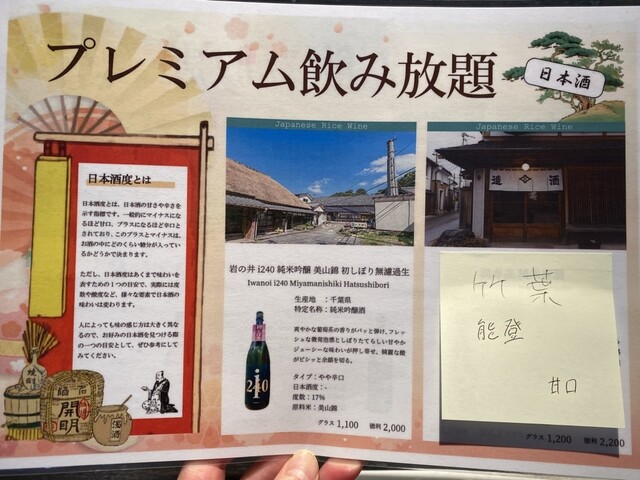 プレミアム飲み放題
日本酒
日本酒度とは
日本酒度とは、日本酒の甘さや辛さを
示す指標です。一般的にマイナスにな
るほど甘口、プラスになるほど辛口と
されており、このプラスとマイナスは、
お酒の中にどのくらい糖分が入ってい
るかどうかで決まります。
ただし、日本酒度はあくまで味わいを
表すための1つの目安で、実際には度
数や酸度など、様々な要素で日本酒の
味わいは変わります。
人によっても味の感じ方は大きく異な
るので、お好みの日本酒を見つける際
の一つの目安として、ぜひ参考にして
みてください。
開明
濁酒
Japanese Rice Wine
岩の井 i240 純米吟醸 美山錦 初しぼり無濾過生
Iwanoi i240 Miyamanishiki Hatsushibori
生産地 ：千葉県
特定名称：純米吟醸酒
爽やかな葡萄茶の香りがパッと弾け、フレッ
シュな微発泡感としぼりたてらしい甘やか
ジューシーな味わいが押し寄せ、綺麗な酸
がピシッと余韻を切る。
タイプ：やや辛口
日本酒度：-
度数：17%
原料米：美山錦
グラス 1,100 徳利 2,000
i
240
Japanese Rice Wine
造 酒
竹葉
能登
甘口
グラス 1,200 徳利 2,200